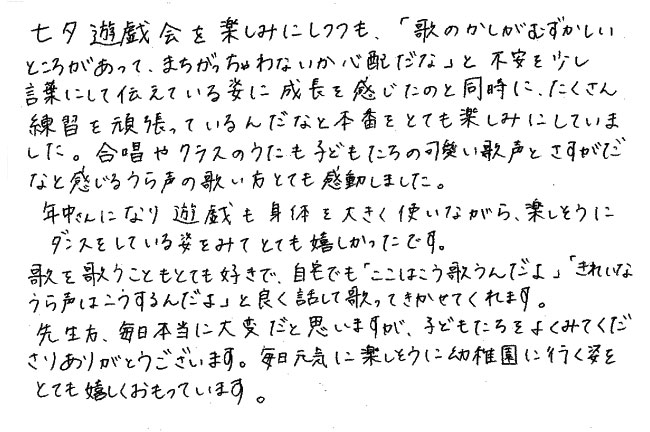 七夕遊戯会を楽しみにしつつも、「歌のかしがむずかしい
ところがあって、まちがっちゃわないか心配だな」と不安を少し
言葉にして伝えている姿に成長を感じたのと同時に、たくさん
練習を頑張っているんだなと本番をとても楽しみにしていま
した。合唱やクラスのうたも子どもたちの可愛い歌声とさすがだ
なと感じるうら声の歌い方とても感動しました。
年中さんになり遊戯も身体を大きく使いながら、楽しそうに
ダンスをしている姿をみてとても嬉しかったです。
歌を歌うこともとても好きで、自宅でも「ここはこう歌うんだよ」「きれいな
うら声はこうするんだよ」と良く話して歌ってきかせてくれます。
先生方、毎日本当に大変だと思いますが、子どもたちをよくみてくだ
さりありがとうございます。毎日元気に楽しそうに幼稚園に行く姿を
とても嬉しくおもっています。